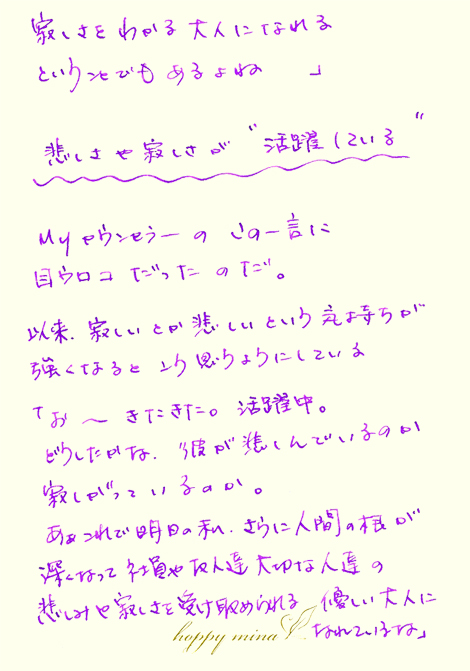 寂しさをわかる大人になれる
ということでもあるよね　」
悲しさや寂しさが"活躍している"
Myカウンセラーのこの一言に
目ウロコだったのだ。
以来、寂しいとか悲しいという気持ちが
強くなるとこう思うようにしている
「お〜きたきた。活躍中。
どうしたかな、彼が悲しんでいるのか
寂しがっているのか。
あぁこれで明日の私、さらに人間の根が
深くなって社員や友人達大切な人達の
悲しみや寂しさを受け止められる優しい大人に
なれているな」
happy mina